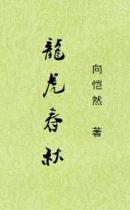 龍虎春秋
向恺然 著